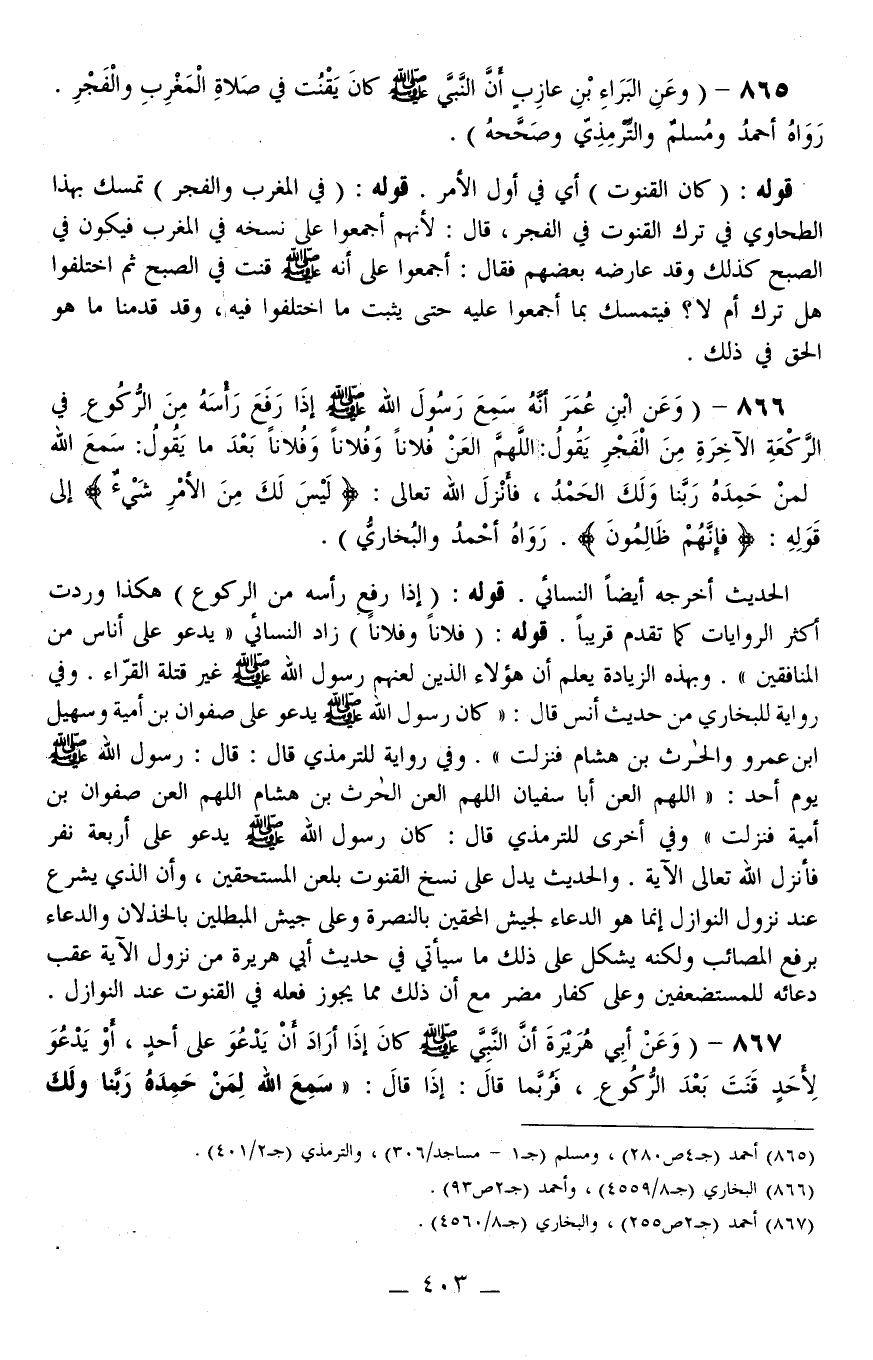 ٨٦٥ – ( وعَنِ البَرَاءِ بْنِ عازِبٍ أَنَّ النَّبيَّ ﷺ كانَ يَقْنُت في صَلاةِ الْمَغْرِبِ والْفَجْرِ .
رَوَاهُ أحمدُ ومُسلمٌ والتِّرْمِذيّ وصَحَّحهُ ) .
قوله : ( كان القنوت ) أي في أول الأمر . قوله : ( في المغرب والفجر ) تمسك بهذا
الطحاوي في ترك القنوت في الفجر ، قال : لأنهم أجمعوا على نسخه في المغرب فيكون في
الصبح كذلك وقد عارضه بعضهم فقال : أجمعوا على أنه ﷺ قنت في الصبح ثم اختلفوا
هل ترك أم لا؟ فيتمسك بما أجمعوا عليه حتى يثبت ما اختلفوا فيه ، وقد قدمنا ما هو
الحق في ذلك .
٨٦٦ – ( وَعَن ابْنِ عُمَرَ أنَّهُ سَمِعَ رَسُولَ الله ﷺ إذَا رَفَعَ رَأْسَهُ مِنَ الرُّكُوعِ في
الرَّكْعَةِ الآخِرَةِ مِنَ الْفَجْرِ يَقُولُ: اللَّهمَّ العَنْ فُلاناً وَفُلاناً وَفُلاناً بَعْدَ ما يَقُولُ: سَمعَ الله
لمنْ حَمِدَهُ رَبَّنا وَلَكَ الحَمْدُ ، فأنْزلَ الله تعالى : ﴿ لَيْسَ لَكَ مِنَ الأمْرِ شَيْءٌ ﴾ إلى
قَوَلِهِ : ﴿ فإنَّهُمْ ظَالِمُونَ ﴾ . رَوَاهُ أحْمدُ والبُخاريُّ ) .
الحديث أخرجه أيضاً النسائي . قوله : ( إذا رفع رأسه من الركوع ) هكذا وردت
أكثر الروايات كما تقدم قريباً . قوله : ( فلاناً وفلاناً ) زاد النسائي « يدعو على أناس من
المنافقين » . وبهذه الزيادة يعلم أن هؤلاء الذين لعنهم رسول الله ﷺ غير قتلة القرّاء . وفي
رواية للبخاري من حديث أنس قال : « كان رسول الله ﷺ يدعو على صفوان بن أمية وسهيل
ابن عمرو والحٰرث بن هشام فنزلت » . وفي رواية للترمذي قال : قال : رسول الله ﷺ
يوم أحد : « اللهم العن أبا سفيان اللهم العن الحٰرث بن هشام اللهم العن صفوان بن
أمية فنزلت » وفي أخرى للترمذي قال : كان رسول الله ﷺ يدعو على أربعة نفر
فأنزل الله تعالى الآية . والحديث يدل على نسخ القنوت بلعن المستحقين ، وأن الذي يشرع
عند نزول النوازل إنما هو الدعاء لجيش المحقين بالنصرة وعلى جيش المبطلين بالخذلان والدعاء
برفع المصائب ولكنه يشكل على ذلك ما سيأتي في حديث أبي هريرة من نزول الآية عقب
دعائه للمستضعفين وعلى كفار مضر مع أن ذلك مما يجوز فعله في القنوت عند النوازل .
٨٦٧ – ( وَعَنْ أبي هُرَيْرَةَ أنَّ النَّبَيَّ ﷺ كانَ إذَا أرَادَ أنْ يَدْعُوَ على أحدٍ ، أوْ يَدْعُوَ
لِأحَدٍ قَنَتَ بَعْدَ الرُّكُوعِ ، فَرُبَّما قالَ : إذَا قالَ : « سَمِعَ الله لِمَنْ حَمِدَهُ رَبَّنا ولَكَ
(٨٦٥) أحمد (جـ٤ص٢٨٠) ، ومسلم (جـ١ – مساجد/٣٠٦) ، والترمذي (جـ٤٠١/٢) .
(٨٦٦) البخاري (جـ٤٥٥٩/٨) ، وأحمد (جـ٢ص٩٣) .
(٨٦٧) أحمد (جـ٢ص٢٥٥) ، والبخاري (جـ٤٥٦٠/٨) .
– ٤٠٣ –